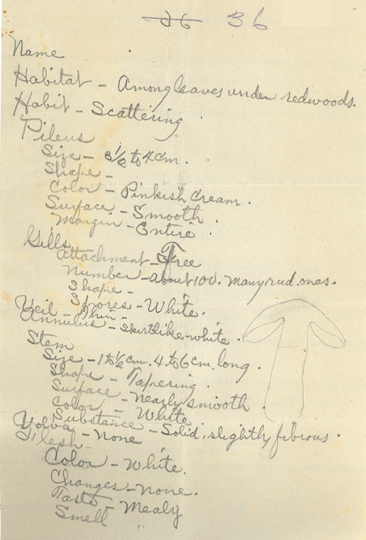 26 36
Name
Habitat - Among leaves under redwoods.
Habit - Scattering.
Pileus
Size - 3 1/2 to 4 cm.
Shape -
Color - Pinkish cream.
Surface - Smooth.
Margin - Entire.
Gills
Attachment - Free
Number - About 100. Many rud. ones.
Shape -
Spores - White.
Veil - Thin -
Annulus - skirtlike - white.
Stem
Size - 1 to 1/2 cm. 4 to 6 cm. long.
Shape - Tapering.
Surface - Nearly smooth.
Color - White
Substance - Solid, slightly fibrous.
Volva - None
Flesh -
Color - White.
Changes - None.
Taste - Mealy
Smell "